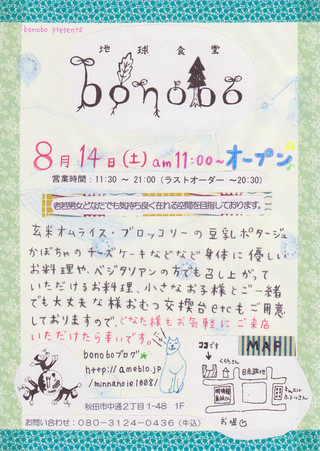 bonobo presents
地球食堂
bonobo
8月14日(土)am11:00〜オープン
営業時間:11:30 ～ 21:00(ラストオーダー ～20:30)
老若男女どなたでも気持ち良く在れる空間を目指しております。
玄米オムライス・ブロッコリーの豆乳ポタージュ
かぼちゃのチーズケーキなどなど身体に優しい
お料理や、ベジタリアンの方でも召し上がって
いただけるお料理、小さなお子様とご一緒
でも大丈夫な様おむつ交換台etcもご用意
しておりますので、どなた様もお気軽にご来店
いただけたら幸いです。
bonoboブログ★
http://ameblo.jp/
minnanoie1008/
ココです
MAP
お堀
秋田市中通2丁目1-48 1F
お問い合わせ:080-3124-0436(牛込)